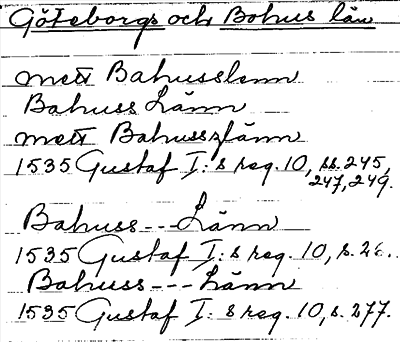 Göteborgs och Bohus län
mett Bahusslenn
Bahuss Länn
mett Bahusszlänn
1535 Gustaf I:s reg. 10, ss. 245,
247, 249.
Bahuss---Länn
1535 Gustaf I:s reg. 10, s. 26..
Bahuss---Länn
1535 Gustaf I:s reg. 10, s. 277.